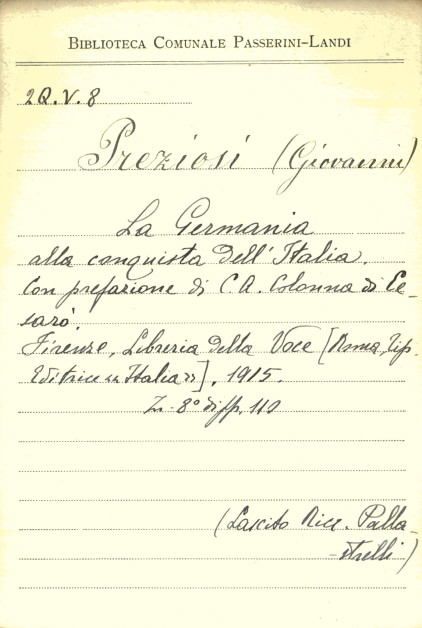 BIBLIOTECA COMUNALE PASSERINI-LANDI
2Q.V.8
Preziosi (Giovanni)
La Germania
alla conquista dell'Italia.
Con prefazione di C. A. Colonna di Ce-
sarò.
Firenze, Libreria della Voce [Roma, Tip.
Editrice "Italia"], 1915.
In-8° di pp. 110
(Lascito Nice. Palla-
-strelli)